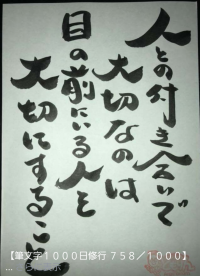 人との付き合いで
大切なのは
目の前にいる人を
大切にすること
【筆文字1000日修行 758/1000】